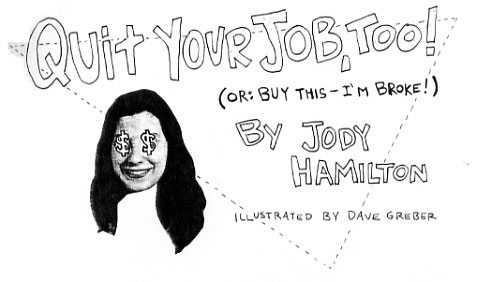 QUIT YOUR JOB, TOO!
(OR: BUY THIS - I'M BROKE!)
BY JODY
HAMILTON
ILLUSTRATED BY DAVE GREBER
$ $